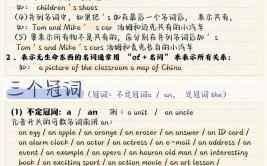 如：children's shoes
(4)并列名词中，如果把's加在最后一个名词后，表示共有，
如：Tom and Mike's car 汤姆和迈克共有的小汽车
(5)要表示所有物不是共有的，应分别在并列名词后加's
Tom's and Mike's cars 汤姆和麦克各自的小汽车
2、表示无生命东西的名词通常用"of+名词"来表示所有关系：
如：a picture of the classroom a map of China
三个冠词（冠词：不定冠词a / an，定冠词the）
(1) 不定冠词：a / an a unit / an uncle
元音开头的可数名词前用an：
an egg / an apple / an orange / an eraser / an answer / an ID card /
an alarm clock / an actor / an actress / an e-mail / an address / an
event / an example / an opera / an houran old man / an interesting
book / an exciting sport / an action movie / an art lesson /